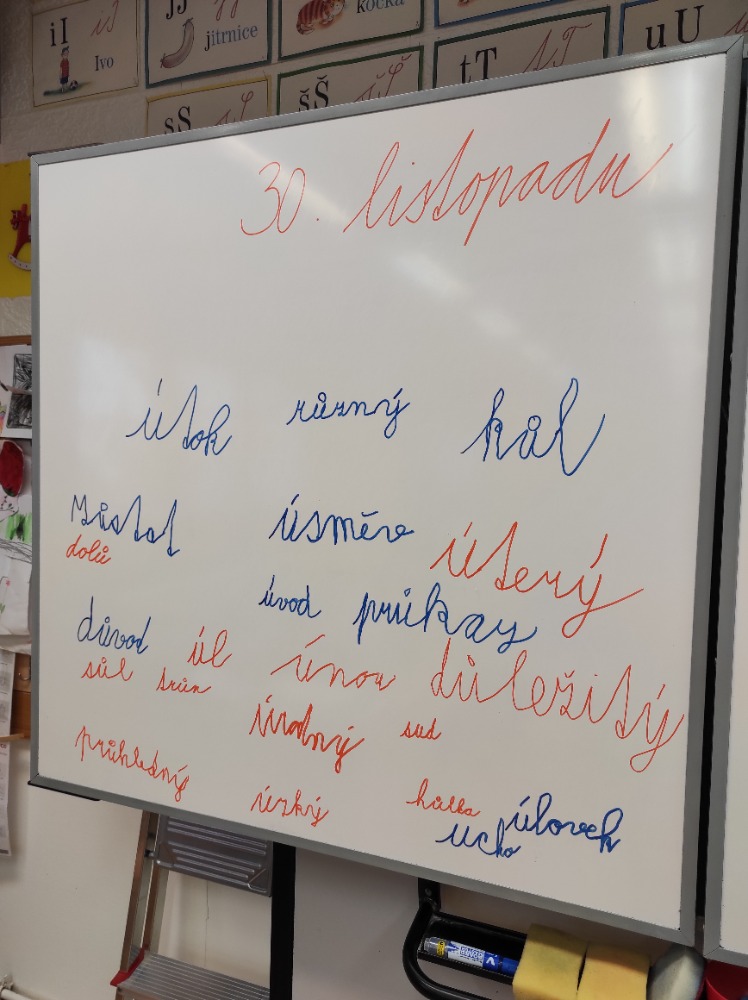 iI
Ivo
jJ
jitrnice
kočka
sS
šŠ
tT
uU
30. listopadu
útok různý kůl
zůstat úsměv úterý
dolů
úvod průkazy
důvod úl únor důležitý
sůl trůn
úrodný sud
průhledný úzký hůlka úlovek
ucho